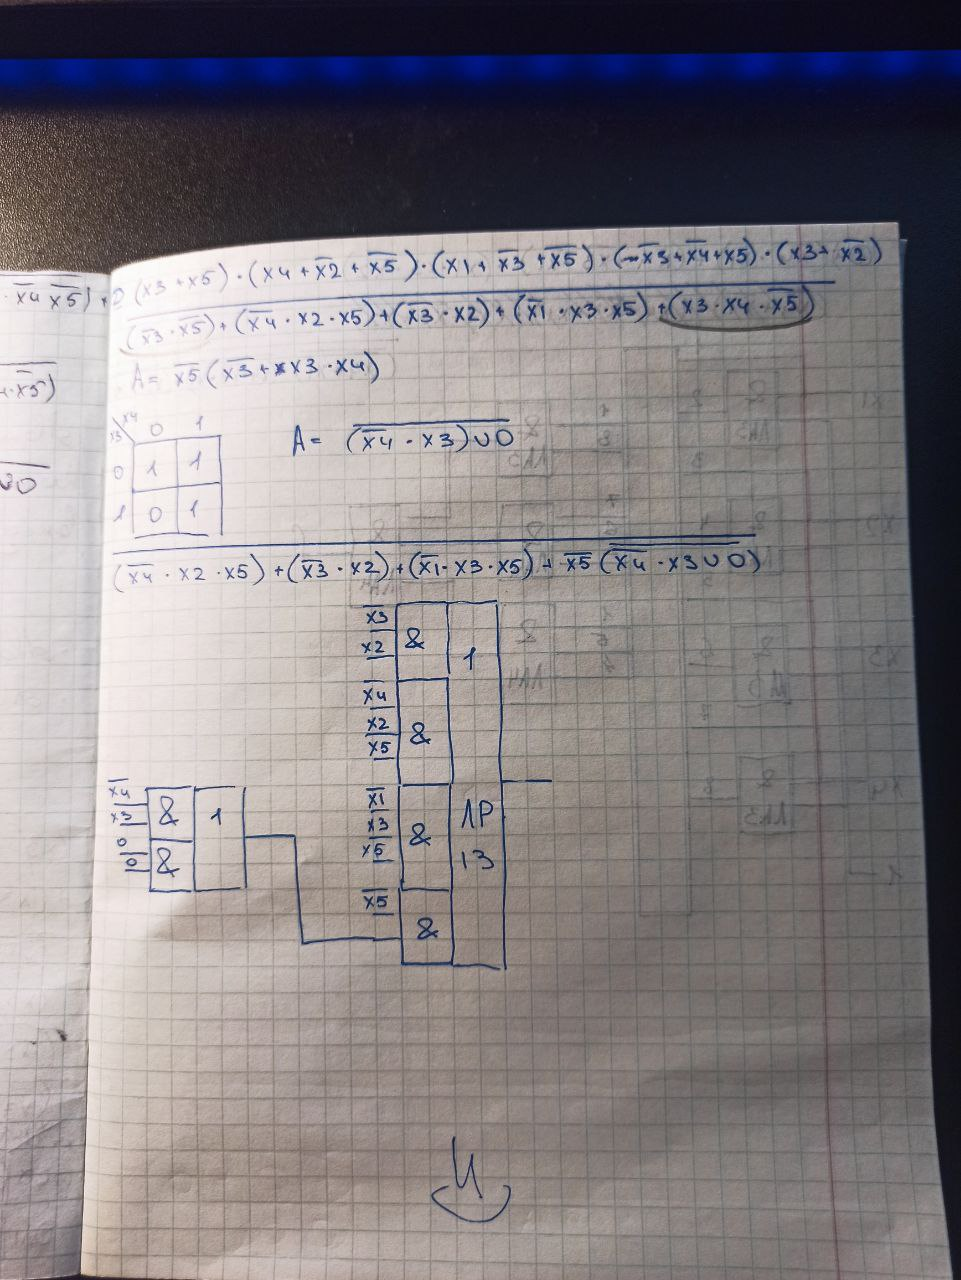 · x̅4 x̅5) +
(x3 + x5) · (x4 + x̅2 + x̅5) · (x1 + x̅3 + x̅5) · (x̅3 + x̅4 + x5) · (x3 + x̅2)
(x̅3 · x̅5) + (x̅4 · x2 · x5) + (x̅3 · x2) + (x̅1 · x3 · x5) + (x3 · x4 · x̅5)
· x̅5)
A = x̅5 (x̅3 + x3 · x4)
x4
x3
0 1
0 1 1
1 0 1
A = (x̅4 · x3) ∪ 0
∪0
(x̅4 · x2 · x5) + (x̅3 · x2) + (x̅1 · x3 · x5) + x̅5 (x̅4 · x3 ∪ 0)
x̅3
x2
&
1
x̅4
x2
x5
&
x̅4
x3
0
0
&
&
1
x̅1
x3
x5
&
ЛР
13
x̅5
&
И